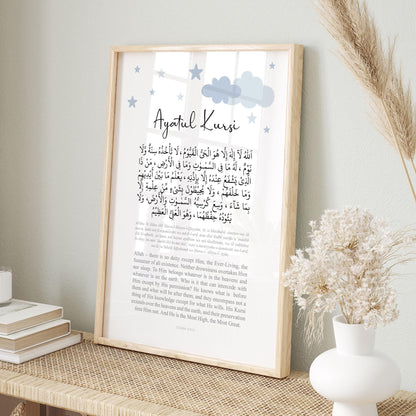 Ayatul Kursi
اللَّهُ لَا إِلَٰهَ إِلَّا هُوَ الْحَيُّ الْقَيُّومُ ، لَا تَأْخُذُهُ سِنَةٌ وَلَا
نَوْمٌ ، لَهُ مَا فِي السَّمَوَاتِ وَمَا فِي الْأَرْضِ ، مَنْ ذَا
الَّذِي يَشْفَعُ عِنْدَهُ إِلَّا بِإِذْنِهِ ، يَعْلَمُ مَا بَيْنَ أَيْدِيهِمْ
وَمَا خَلْفَهُمْ ، وَلَا يُحِيطُونَ بِشَيْءٍ مِنْ عِلْمِهِ إِلَّا
بِمَا شَاءَ ، وَسِعَ كُرْسِيُّهُ السَّمَوَاتِ وَالْأَرْضَ ، وَلَا
يَئُودُهُ حِفْظُهُمَا ، وَهُوَ الْعَلِيُّ الْعَظِيمُ
Allah - there is no deity except Him, the Ever-Living, the
Sustainer of all existence. Neither drowsiness overtakes Him
nor sleep. To Him belongs whatever is in the heavens and
whatever is on the earth. Who is it that can intercede with
Him except by His permission? He knows what is before
them and what will be after them, and they encompass not a
thing of His knowledge except for what He wills. His Kursi
extends over the heavens and the earth, and their preservation
tires Him not. And He is the Most High, the Most Great.